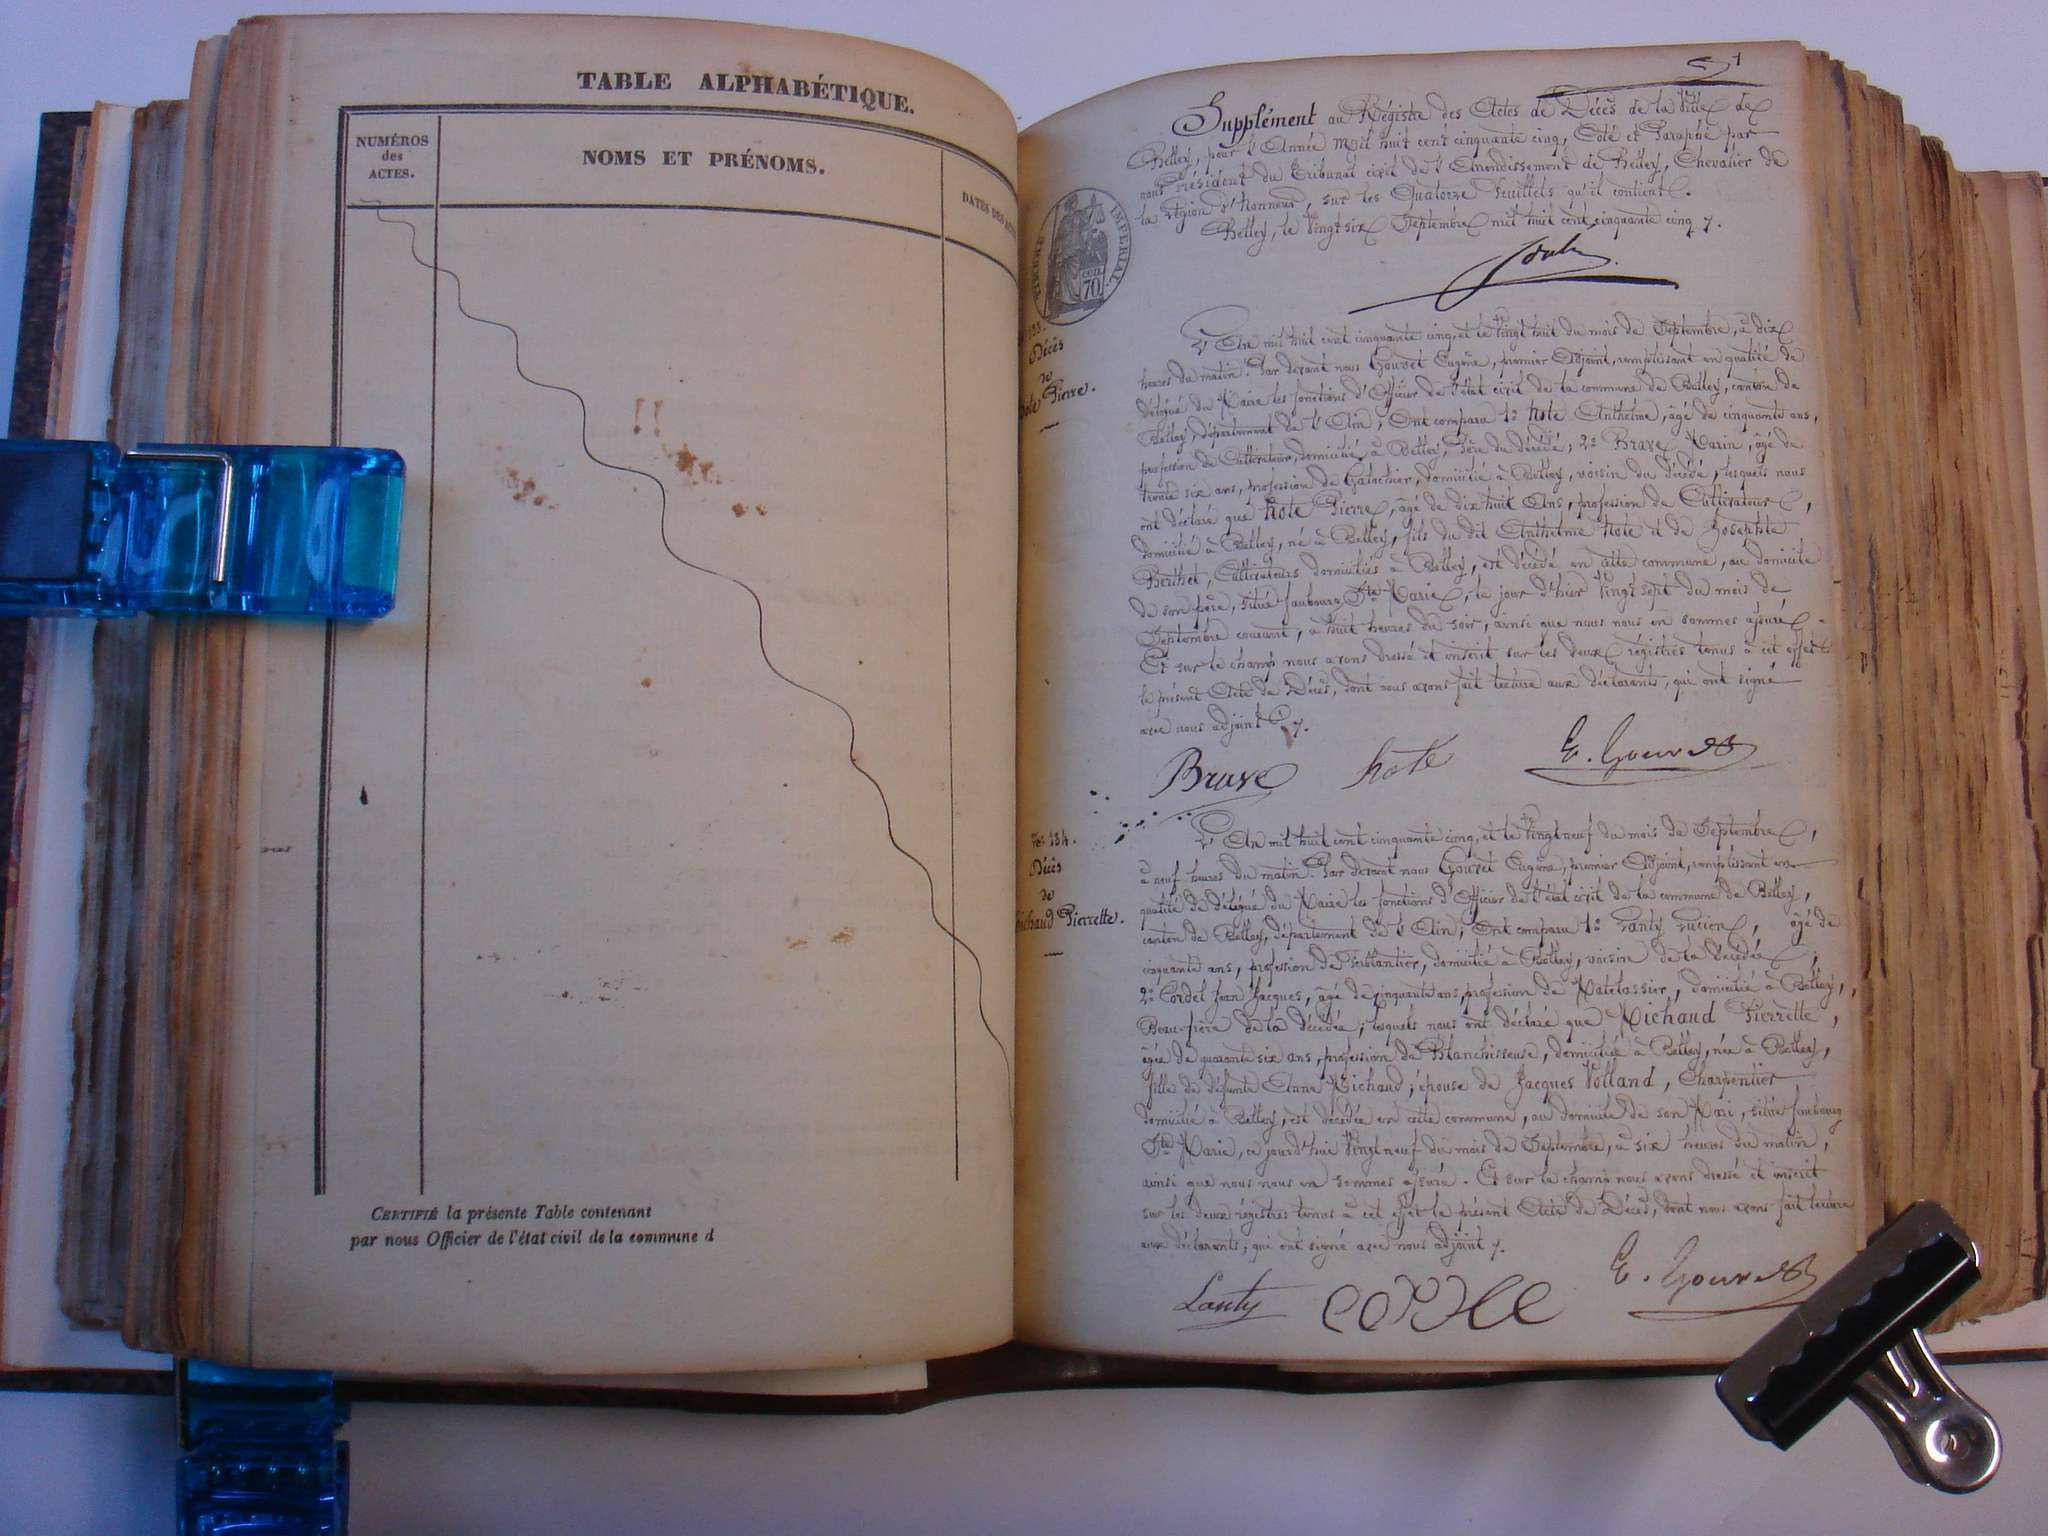 TABLE ALPHABÉTIQUE.
NUMÉROS
des
ACTES.
NOMS ET PRÉNOMS.
DATES DES
CERTIFIÉ la présente Table contenant
par nous Officier de l'état civil de la commune d
1
Supplément au Régistre des Actes de Décès de la Ville de
Belley, pour l'Année Mil huit cent cinquante cinq, Coté et Paraphé par
nous Président du Tribunal civil de l'Arrondissement de Belley, Chevalier de
la Légion d'honneur, sur les Quatorze Feuillets qu'il contient.
Belley, le Vingt six Septembre mil huit cent cinquante cinq
TIMBRE IMPERIAL
CEN.
70
133.
Décès
de
hote Pierre.
L'An mil huit cent cinquante cinq, et le Vingt huit du mois de Septembre, à dix
heures du matin. Par devant nous Gouvet Eugène, premier Adjoint, remplissant en qualité de
délégué du Maire les fonctions d'Officier de l'état civil de la commune de Belley, canton de
Belley, département de l'Ain; Ont comparu 1º hote Anthelme, âgé de cinquante ans,
profession de Cultivateur, domicilié à Belley, Père du décédé; 2º Brave Marin, âgé de
trente six ans, profession de Galochier, domicilié à Belley, voisin du décédé, lesquels nous
ont déclaré que hote Pierre, âgé de dix huit Ans, profession de Cultivateur,
domicilié à Belley, né à Belley, fils du dit Anthelme hote et de Josephte
Berthet, Cultivateurs domiciliés à Belley, est décédé en cette commune, au domicile
de son père, située faubourg Ste Marie, le jour d'hier Vingt sept du mois de
Septembre courant, à huit heures du soir, ainsi que nous nous en sommes assuré.
Et sur le champ nous avons dressé et inscrit sur les deux régistres tenus à cet effet
le présent Acte de Décès, dont nous avons fait lecture aux déclarants, qui ont signé
avec nous adjoint
Brave hote E. Gouvet
No 134.
Décès
de
Michaud Pierrette.
L'An mil huit cent cinquante cinq, et le Vingt neuf du mois de Septembre,
à neuf heures du matin. Par devant nous Gouvet Eugène, premier Adjoint, remplissant en
qualité de délégué du Maire les fonctions d'Officier de l'état civil de la commune de Belley,
canton de Belley, département de l'Ain; Ont comparu 1º Lanty Lucien, âgé de
cinquante ans, profession de Ferblantier, domicilié à Belley, voisin de la décédée;
2º Cordel Jean Jacques, âgé de cinquante ans, profession de Matelassier, domicilié à Belley,
Beau-frère de la décédée; lesquels nous ont déclaré que Michaud Pierrette,
âgée de quarante six ans, profession de Blanchisseuse, domiciliée à Belley, née à Belley,
fille de défunte Anne Michaud; épouse de Jacques Volland, Charpentier
domicilié à Belley, est décédée en cette commune, au domicile de son Mari, située faubourg
Ste Marie, ce jourd'hui Vingt neuf du mois de Septembre, à six heures du matin,
ainsi que nous nous en sommes assuré. Et sur le champ nous avons dressé et inscrit
sur les deux régistres tenus à cet effet le présent Acte de Décès, dont nous avons fait lecture
aux déclarants, qui ont signé avec nous adjoint
Lanty E. Gouvet